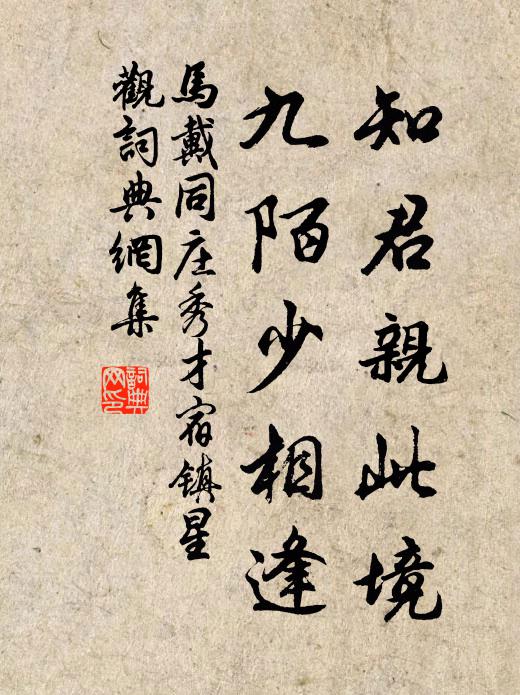 知君親此境
九陌少相逢
馬戴同庄秀才宿镇星
觀詞典網集
詞典網印